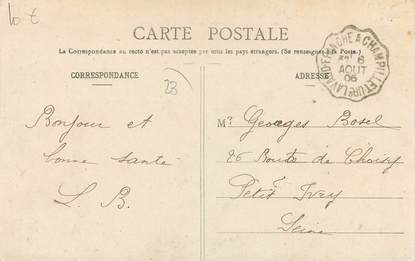 CARTE POSTALE
La Correspondance au recto n'est pas acceptée par tous les pays étrangers. (Se renseigner à la Poste).
CORRESPONDANCE
ADRESSE
23
6
AOUT
06
Bonjour et
bonne santé
L. B.
Mr. Georges Bosel
26 Route de Choisy
Petit Ivry
Seine